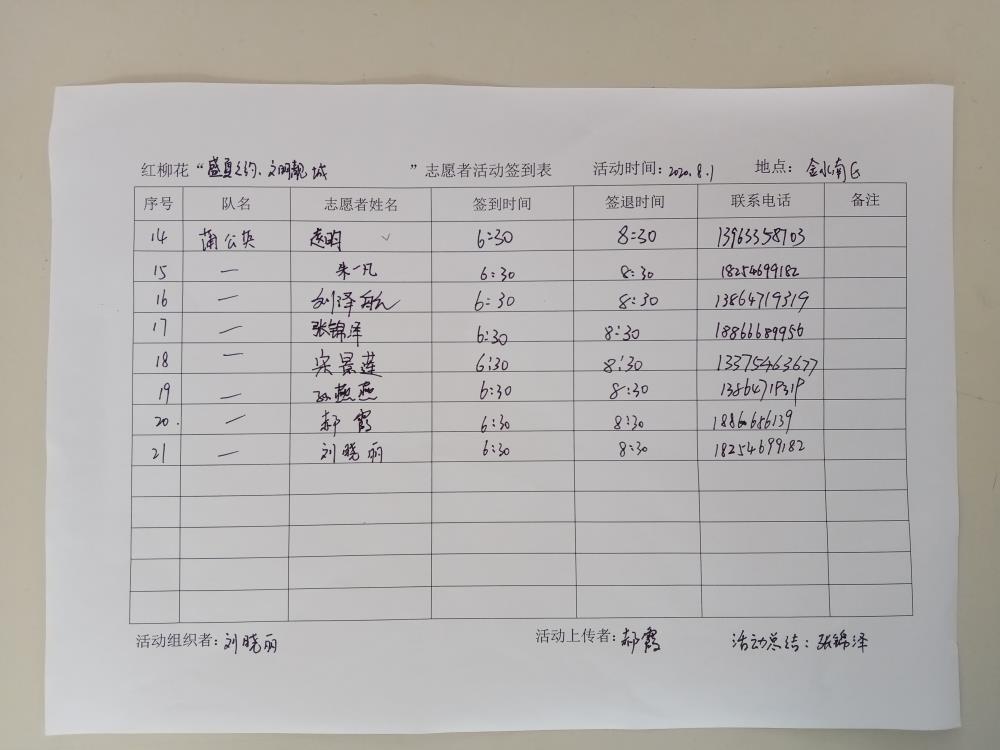 红柳花“盛夏之约、文明靓城”志愿者活动签到表 活动时间：2020.8.1 地点：金水南区
序号 队名 志愿者姓名 签到时间 签退时间 联系电话 备注
14 蒲公英 6:30 8:30 13963358703
15 — 朱一凡 6:30 8:30 18254699182
16 — 刘泽航 6:30 8:30 13864719319
17 — 张锦泽 6:30 8:30 18866689956
18 — 宋景莲 6:30 8:30 13375463677
19 — 孙燕燕 6:30 8:30 13864719319
20. — 郝霞 6:30 8:30
21 — 刘晓丽 6:30 8:30 18254699182
活动组织者：刘晓丽 活动上传者：郝霞 活动总结：张锦泽